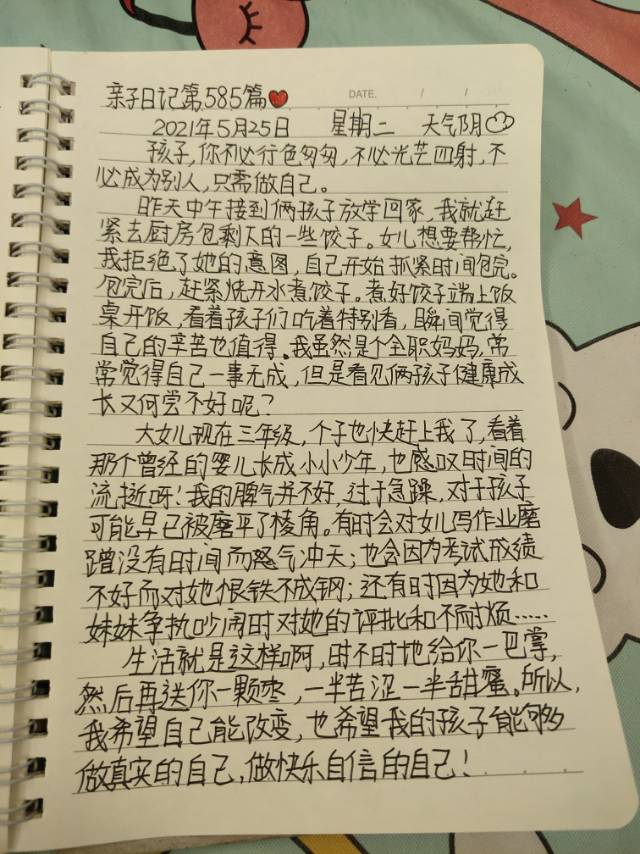 亲子日记第585篇
DATE. / /
2021年5月25日 星期二 天气阴
孩子,你不必行色匆匆,不必光芒四射,不
必成为别人,只需做自己。
昨天中午接到俩孩子放学回家,我就赶
紧去厨房包剩下的一些饺子。女儿想要帮忙,
我拒绝了她的意图,自己开始抓紧时间包完。
包完后,赶紧烧开水煮饺子。煮好饺子端上饭
桌开饭,看着孩子们吃着特别香,瞬间觉得
自己的辛苦也值得。我虽然是个全职妈妈,常
常觉得自己一事无成,但是看见俩孩子健康成
长又何尝不好呢?
大女儿现在三年级,个子也快赶上我了,看着
那个曾经的婴儿长成小小少年,也感叹时间的
流逝呀!我的脾气并不好,过于急躁,对于孩子
可能早已被磨平了棱角。有时会对女儿写作业磨
蹭没有时间而怒气冲天;也会因为考试成绩
不好而对她恨铁不成钢;还有时因为她和
妹妹争执吵闹时对她的评批和不耐烦……
生活就是这样啊,时不时地给你一巴掌,
然后再送你一颗枣,一半苦涩一半甜蜜。所以,
我希望自己能改变,也希望我的孩子能够
做真实的自己,做快乐自信的自己!